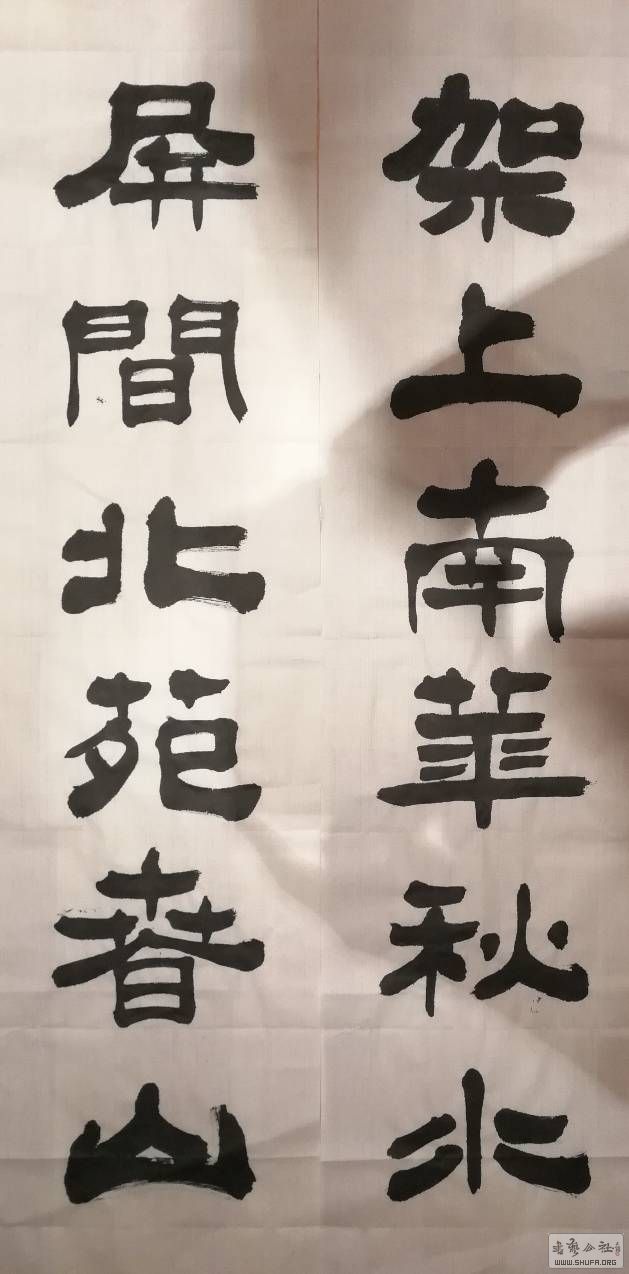 架上南華秋水
屏間北苑春山
WWW.SHUFA.ORG